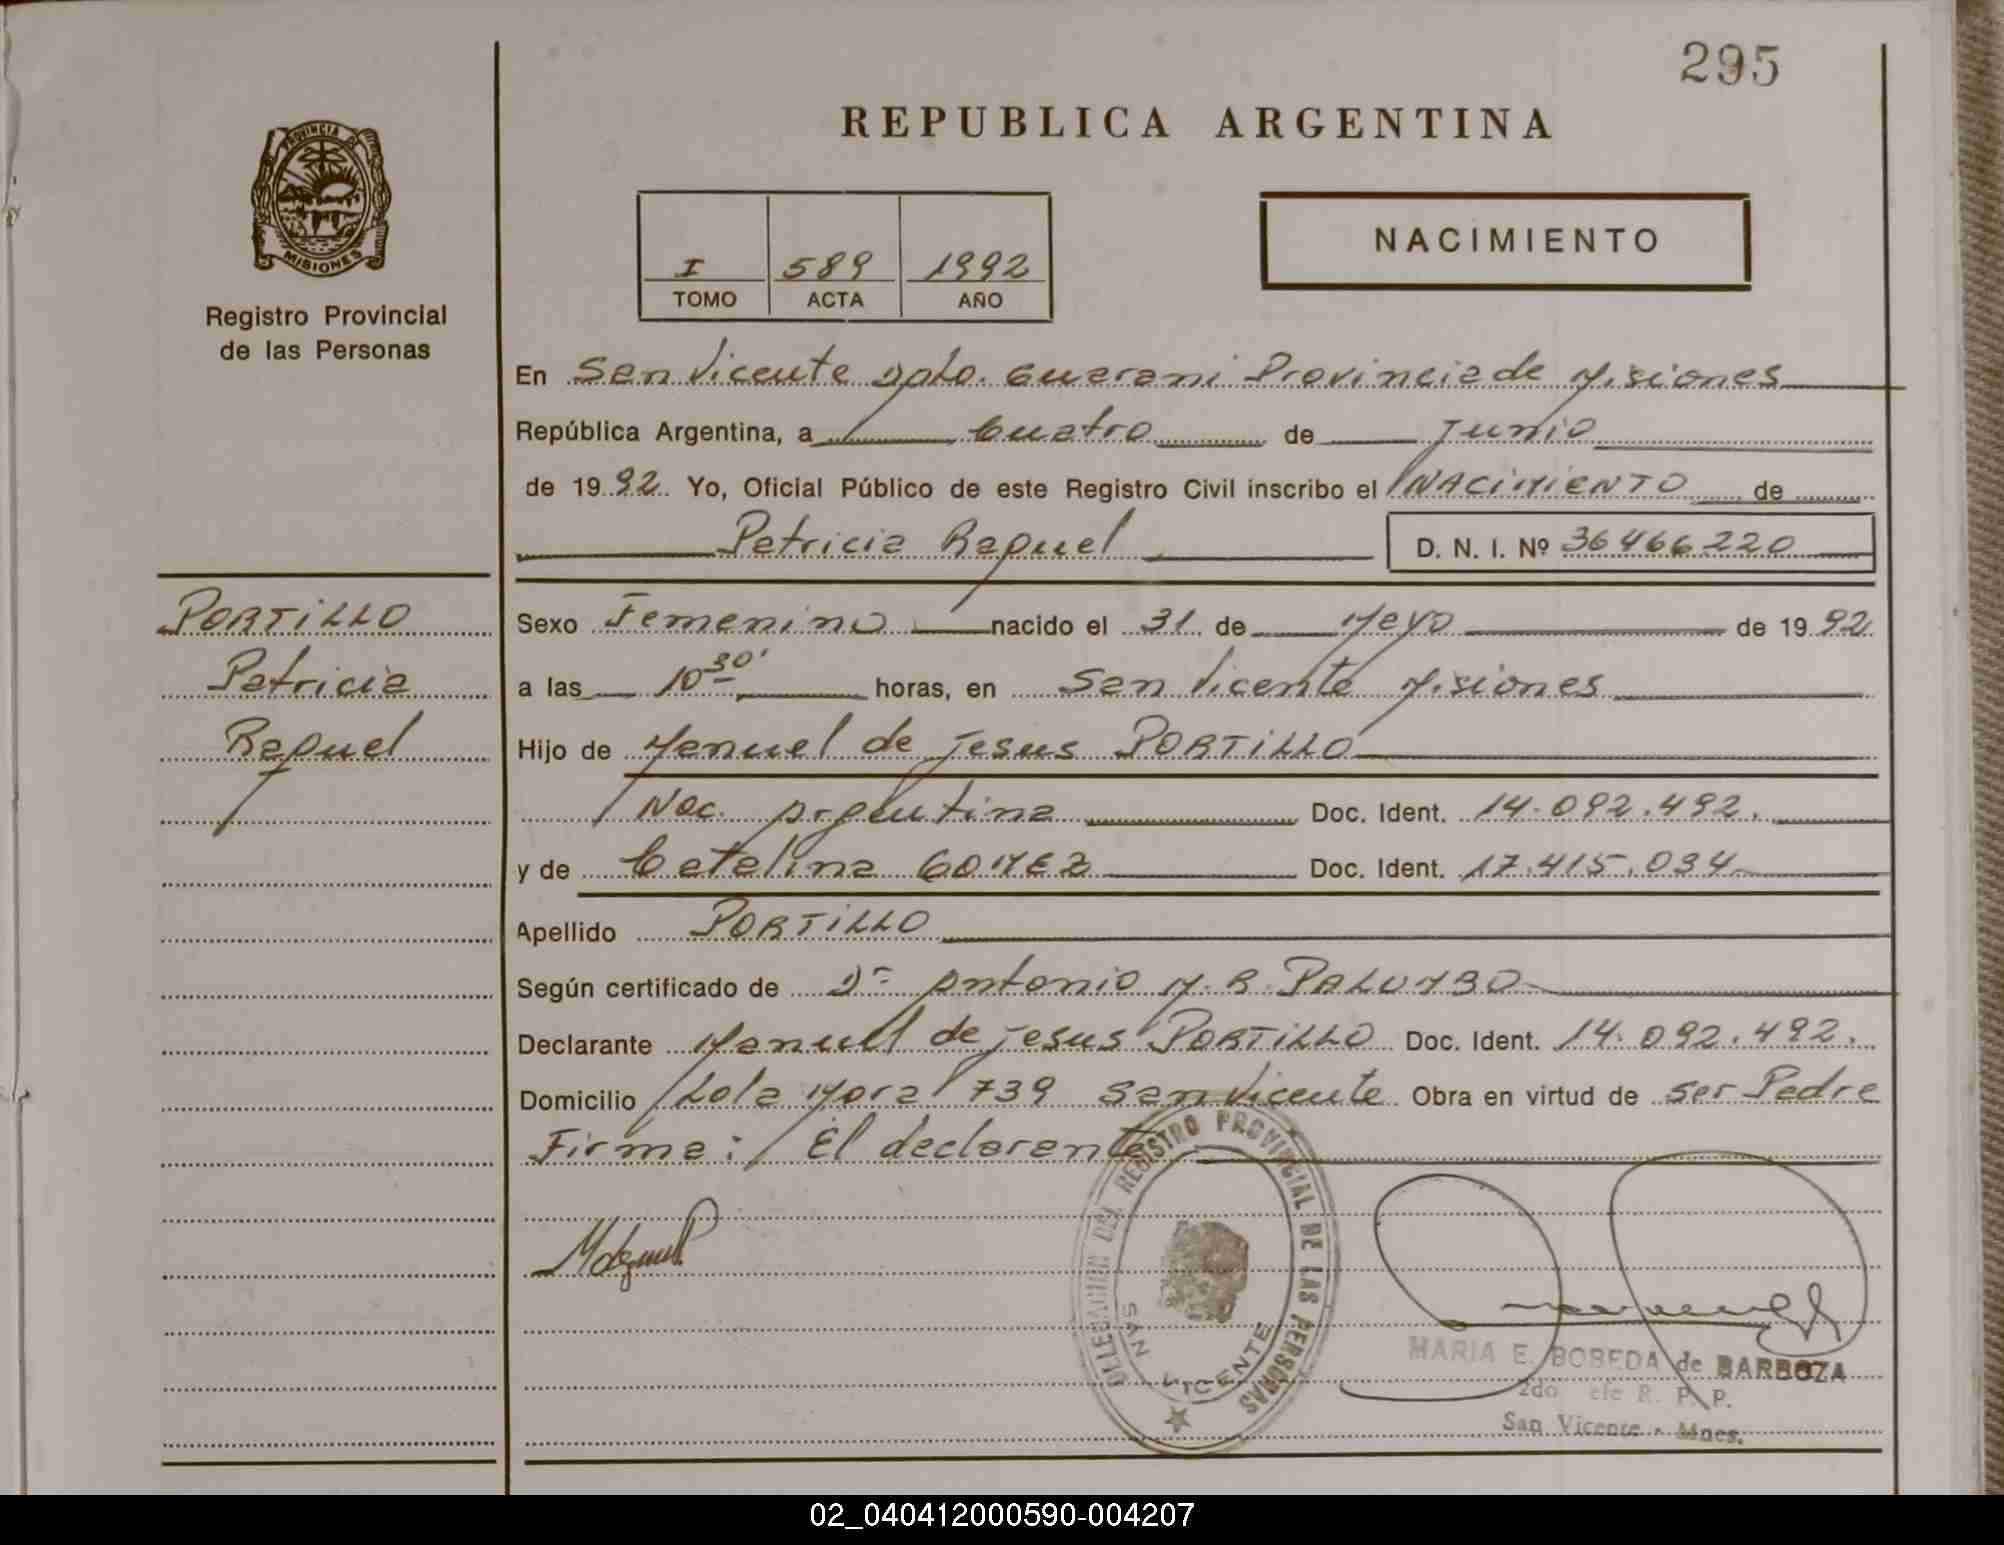 295
REPUBLICA ARGENTINA
PROVINCIA DE
MISIONES
Registro Provincial
de las Personas
I 589 1992
TOMO ACTA AÑO
NACIMIENTO
En San Vicente Dpto. Guarani Provincia de Misiones
República Argentina, a Cuatro de Junio
de 1992 Yo, Oficial Público de este Registro Civil inscribo el NACIMIENTO de
Patricia Raquel D. N. I. Nº 36466220
PORTILLO
Patricia
Raquel
Sexo Femenino nacido el 31 de Mayo de 1992
a las 10 30' horas, en San Vicente Misiones
Hijo de Manuel de Jesus PORTILLO
Nac. Argentina Doc. Ident. 14.092.492.
y de Catalina GOMEZ Doc. Ident. 17.415.034
Apellido PORTILLO
Según certificado de Dr Antonio M. R. PALUMBO
Declarante Manuel de Jesus PORTILLO Doc. Ident. 14.092.492.
Domicilio Lola Mora 739 San Vicente Obra en virtud de ser Padre
Firma: El declarante
DELEGACION DEL REGISTRO PROVINCIAL DE LAS PERSONAS
SAN VICENTE
MARIA E. BOBEDA de BARBOZA
2do efe R. P. P.
San Vicente - Mnes.
02_040412000590-004207